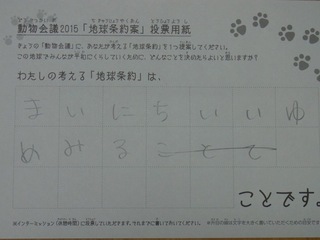 動物会議2016「地球条約案」投票用紙
きょうの「動物会議」に、あなたが考える「地球条約」を1つ提案してください。
この地球でみんなが平和にくらしていくために、どんなことを決めたらよいと思いますか?
わたしの考える「地球条約」は、
まいにちいいゆ
めみること
ことです。